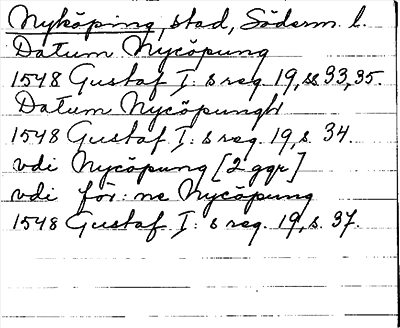 Nyköping, stad, Söderm. l.
Datum Nycöpung
1548 Gustaf I:s reg. 19, ss 33, 35.
Datum Nycöpungh
1548 Gustaf I:s reg. 19, s. 34.
vdi Nycöpung [2 ggr]
vdi för:ne Nycöpung
1548 Gustaf I:s reg. 19, s. 37.